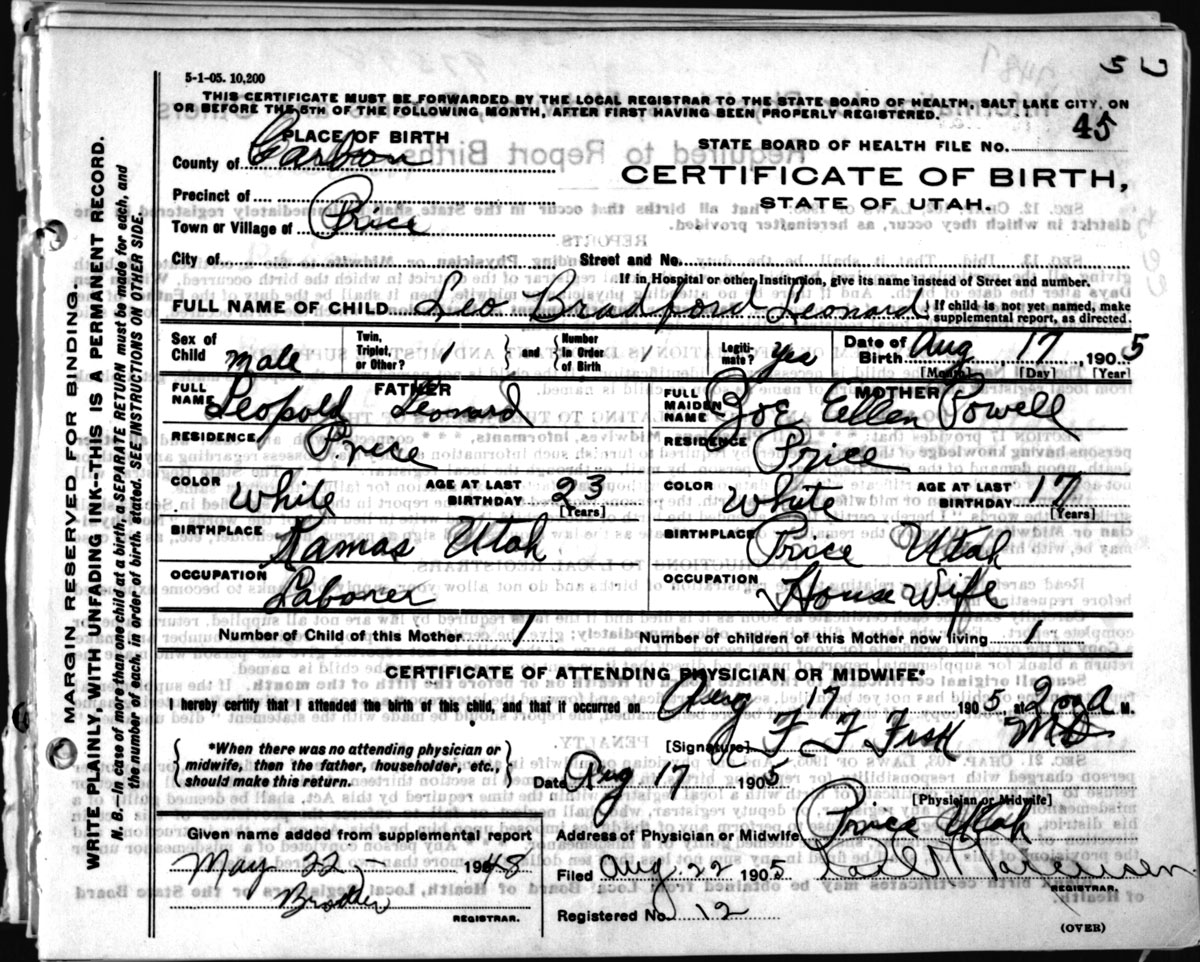 5-1-05. 10,200
THIS CERTIFICATE MUST BE FORWARDED BY THE LOCAL REGISTRAR TO THE STATE BOARD OF HEALTH, SALT LAKE CITY, ON
OR BEFORE THE 5TH OF THE FOLLOWING MONTH, AFTER FIRST HAVING BEEN PROPERLY REGISTERED.
45
PLACE OF BIRTH
STATE BOARD OF HEALTH FILE NO.
County of Carbon
CERTIFICATE OF BIRTH,
STATE OF UTAH.
Precinct of
Town or Village of Price
City of Street and No.
If in Hospital or other Institution, give its name instead of Street and number.
FULL NAME OF CHILD Leo Bradford Leonard { If child is not yet named, make supplemental report, as directed.
Sex of Child Male Twin, Triplet, or Other? 1 } and { Number in Order of Birth 1 Legitimate? Yes Date of Birth Aug 17 1905
[Month] [Day] [Year]
FATHER
FULL NAME Leopold Leonard
MOTHER
FULL MAIDEN NAME Zoe Eellen Powell
RESIDENCE Price
RESIDENCE Price
COLOR White AGE AT LAST BIRTHDAY 23 [Years]
COLOR White AGE AT LAST BIRTHDAY 17 [Years]
BIRTHPLACE Kamas Utah
BIRTHPLACE Price Utah
OCCUPATION Laborer
OCCUPATION House Wife
Number of Child of this Mother 1 Number of children of this Mother now living 1
CERTIFICATE OF ATTENDING PHYSICIAN OR MIDWIFE*
I hereby certify that I attended the birth of this child, and that it occurred on Aug 17 1905, at 2 00 a M.
{ *When there was no attending physician or midwife, then the father, householder, etc., should make this return. }
[Signature] F F Fisk MD
Date Aug 17 1905
[Physician or Midwife]
Address of Physician or Midwife Price Utah
Given name added from supplemental report
May 22- 1948
REGISTRAR.
Filed Aug 22 1905
REGISTRAR.
Registered No. 12
(OVER)
MARGIN RESERVED FOR BINDING.
WRITE PLAINLY WITH UNFADING INK--THIS IS A PERMANENT RECORD.
N. B.—In case of more than one child at a birth, a SEPARATE RETURN must be made for each, and
the number of each, in order of birth, stated. SEE INSTRUCTIONS ON OTHER SIDE.